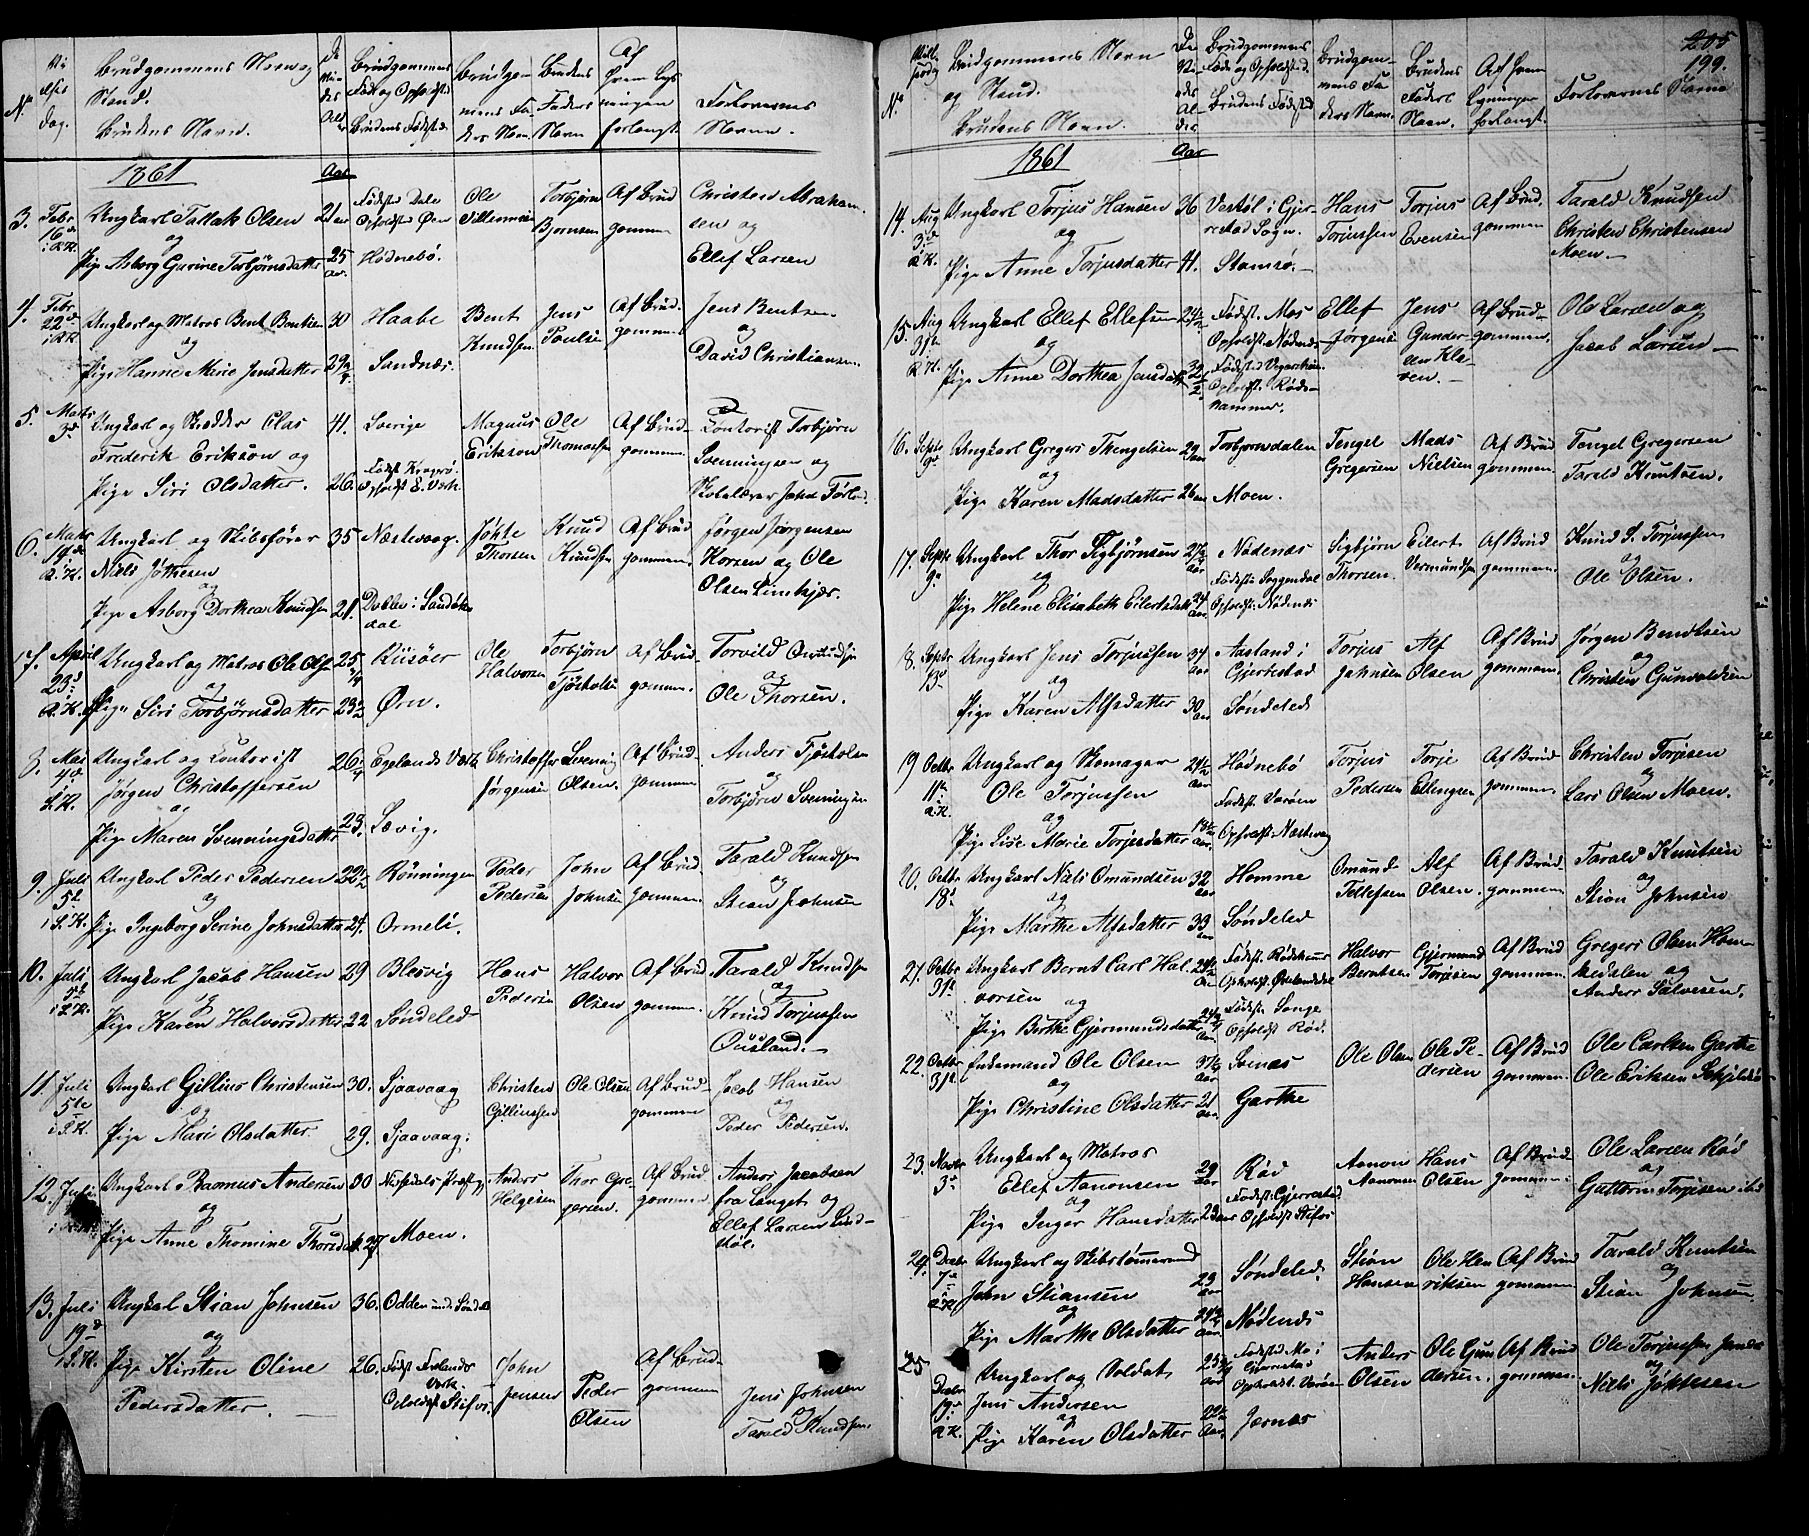 No
Vielses Dag.
Brudgommens Navn og Stand.
Brudens Navn.
Brudgommens Føde og Opholdssted
Brudens Fødested.
Brudgommens Faders Navn.
Brudens Faders Navn
Af hvem Lysningen forlangt.
Forlovernes Navne.
1861
Aar
3. Febr 16de
Ungkarl Tallak Olsen 21
og
Pige Asborg Gurine Torbjørnsdatter 25
Fødested Dale
Opholdsted Øen
Hødnebø.
Ole
Torbjørn Bjørnsen
Af Brudgommen
Christen Abrahamsen og
Ellef Larsen
4. Febr 22de
Ungkarl og Matros Bent Bentsen 30
og
Pige Hanne Marie Jensdatter
Haabe
Sandnæs.
Bent Knudsen
Jens Poulsen
Af Brudgommen
Jens Bentsen
og
David Christiansen
5. Marts 3de
Ungkarl og Skrædder Clas Frederik Erikson og 41.
Pige Siri Olsdatter. 26.
Sverige
Født Kragerø
Opholdst. E. Værk.
Magnus Erikson
Ole Thomassen
Af Brudgommen
Contorist Torbjørn Svenningsen og
Skolelærer John
6. Marts 19de
Ungkarl og Skibsfører 35
Niels Jøktesen
og
Pige Asborg Dorthea Knudsen 21.
Næstevaag.
Jøkte Thorsen
Knud Knudsen
Af Brudgommen.
Jørgen Jørgensen
og Ole
Olsen
7. April 23de
Ungkarl og Matros Ole Olsen
og
Pige Siri Torbjørnsdatter 23½
Riisøer
Øen.
Ole Halvorsen
Torbjørn Tjøstolsen
Af Brudgommen.
Torvild
og
Ole Thorsen.
8. Mai 4de
Ungkarl og Contorist
Jørgen Christoffersen
og
Pige Maren Svenningsdatter 23.
Egelands Værk
Sævig.
Christoffer Jørgensen
Svenning Olsen.
Af Brudgommen
Anders Tjøstolsen
og
Torbjørn Svenningsen
9. Juli 5te
Ungkarl Peder Pedersen 22½
og
Pige Ingeborg Serine Johnsdatter 24.
Rønningen
Ormeli.
Peder Pedersen
John Johnsen
Af Brudgommen.
Tarald Knudsen
og
Stian Johnsen
10. Juli 5te
Ungkarl Jacob Hansen 29
og
Pige Karen Halvorsdatter 22
Blesvig
Søndeled
Hans Pedersen
Halvor Olsen
Af Brudgommen.
Tarald Knudsen
og
Knud Torjussen
Ousland.
11. Juli 5te
Ungkarl Gillius Christensen 30.
og
Pige Mari Olsdatter. 29.
Sjaavaag
Sjaavaag.
Christen Gilliussen
Ole Olsen
Af Brudgommen
Jacob Hansen
og
Peder Pedersen.
12. Juli
Ungkarl Rasmus Andersen 30
og
Pige Anne Thomine Thorsdatt. 27
Nissedals Præstg.
Moen.
Anders Helgesen
Thor Gregersen.
Af Brudgommen
Anders Jacobsen
fra Langet og
Ellef Larsen Lindstøl.
13. Juli 19de
Ungkarl Stian Johnsen 36.
og
Pige Kirsten Oline Pedersdatter. 26.
Odden und. Søndel.
Født Froland Værk.
Opholdst Stifvi.
John Jensen
Peder Olsen
Af Brudgommen
Jens Johnsen
og
Tarald Knudsen
205
199.
No
Brudgommens Navn og Stand.
Brudens Navn.
Brudgommens Føde og Opholdsted.
Brudens Fødested
Brudgommens Faders Navn.
Brudens Faders Navn.
Af hvem Lysninger forlangt.
Forlovernes Navne
1861
Aar
14. Aug 3de
Ungkarl Torjus Hansen 36
og
Pige Anne Torjusdatter 41.
Vestøl i Gjerrestad Sogn.
Stamsø.
Hans Torjussen
Torjus Evensen
Af Brudgommen
Tarald Knudsen
Christen Christensen
Moen.
15. Aug 31te
Ungkarl Ellef Ellefsen 24½
og
Pige Anne Dorthea Jensdatt 32½
Fødest. Mos
Opholdst. Nødenes
Fødested Vegarsheien
Opholdst. Rødshammer.
Ellef Jørgensen
Jens Gundersen Kleven.
Af Brudgommen,
Ole Larsen og
Jacob Larsen
16. Septr 9de
Ungkarl Gregers Thengelsen 29
og
Pige Karen Madsdatter 26
Torbjørnsdalen
Moen.
Tengel Gregersen
Mads Nielsen
Af Brudgommen.
Tengel Gregersen
Tarald Knutsen.
17. Septr 9de
Ungkarl Thor Sigbjørnsen
og
Pige Helene Elisabeth Eilertsdatt
Nødenæs
Fødeste Soggendal
Opholdst: Nødenæs
Sigbjørn Thorsen.
Eilert Vermundsen
Af Brudgommen.
Knud S. Torjussen
og
Ole Olsen.
18. Septr 13de
Ungkarl Jens Torjussen 34
og
Pige Karen Alfsdatter 30
Aasland i Gjerrestad
Søndeled
Torjus Johnsen
Alf Olsen
Af Brudgommen.
Jørgen Bendtsen
og
Christen Gunvaldsen
19 Octbr 11te
Ungkarl og Skomager
Ole Torjussen
og
Pige Lise Marie Torjesdatter
Hødnebø
Fødest. Varøen
Opholdst. Næstvaag
Torjus Pedersen
Torje Ellingsen
Af Brudgommen.
Christen Torjesen
og
Lars Olsen Moen.
20. Octbr 18de
Ungkarl Niels Omundsen 32
og
Pige Marthe Alfsdatter 33
Homme
Søndeled
Omund Tellefsen
Alf Olsen.
Af Brudgommen
Tarald Knutsen
og
Stian Johnsen
21. Octbr 31te
Ungkarl Bernt Carl Halvorsen
og
Pige Berthe Gjermundsdatter
Fødest.
Fødest. Songe
Opholdst Rød.
Halvor Berntsen
Gjermund Torjesen
Af Brudgommen.
Gregers Olsen
og
Anders Salvesen.
22. Octbr 31te
Enkemand Ole Olsen 37½
og
Pige Christine Olsdatter 21
Garthe
Ole Olsen
Ole Pedersen
Af Brudgommen.
Ole Carlsen Garthe
Ole Eriksen
23. Novbr 3de
Ungkarl og Matros
Ellef Aanonsen 29
og
Pige Inger Hansdatter 23
Rød
Fødest: Gjerrestad
Opholdst Stifvi
Aanon Aanonsen
Hans Olsen
Af Brudgommen.
Ole Larsen Rød
og
Guttorm Torjesen ibid
24. Decbr 7de
Ungkarl og Skibstømmermand
John Stiansen 23
og
Pige Marthe Olsdatter
Søndeled.
Nødenes
Stian Hansen
Ole Henriksen
Af Brudgommen
Tarald Knutsen
og
Stian Johnsen
25 Decbr 19de
Ungkarl og Soldat
Jens Andersen
og
Pige Karen Olsdatter
Fødested Mo i Gjerrestad
Opholdst. Varøen
Jernæs
Anders Olsen
Ole Gundersen.
Af Brudgommen.
Ole Torjussen
og
Niels Jøktesen